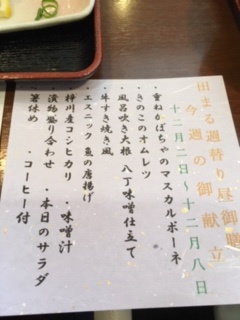 田まる週替り昼御膳
今週の御献立
十二月二日〜十二月八日
・重ねかぼちゃのマスカルポーネ
・きのこのオムレツ
・風呂吹き大根 八丁味噌仕立て
・牛すき焼き風
・エスニック 鶏の唐揚げ
・梓川産コシヒカリ ・味噌汁
・漬物盛り合わせ ・本日のサラダ
・箸休め ・コーヒー付